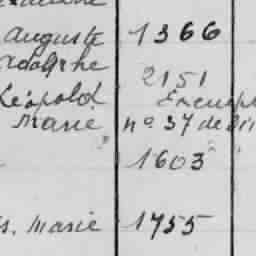 Auguste 1366
Adolphe
2151
Léopold
Marie no 37 de
1603
s. Marie 1755